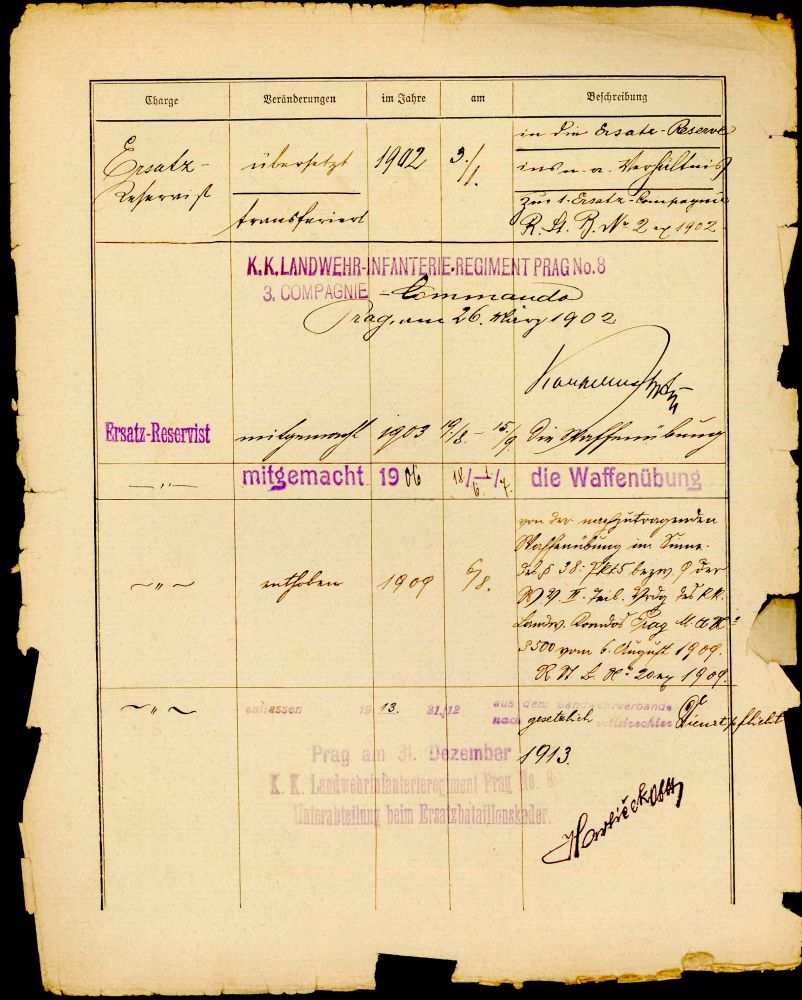 Charge Veränderungen im Jahre am Beschreibung
in die Ersatz-Reserve
Ersatz- übersetzt 1902 3./1. ins n. a. Verhältniß
Reservist
zur 1. Ersatz-Compagnie
transferiert R. St. B. No 2 ex 1902
K.K. LANDWEHR-INFANTERIE-REGIMENT PRAG No. 8
3. COMPAGNIE - Commando
Prag, am 26. März 1902
Ersatz-Reservist mitgemacht 1903 19/8. - 15./9. die Waffenübung
—„— mitgemacht 1906 18/6. - 1/7. die Waffenübung
von der nachzutragenden
Waffenübung im Sinne
des § 38: Pkt 5 bezw. 9 der
~„~ enthoben 1909 6/8. W. V. II. Teil. Vrdg des k.k.
Landw. Komdos Prag M. A. No
3500 vom 6. August 1909.
R St B. No 20 ex 1909.
~„~ entlassen 1913. 31./12 aus dem Landwehrverbande
nach gesetzlich vollstreckter Dienstpflicht
Prag am 31. Dezember 1913.
K. K. Landwehrinfanterieregiment Prag No. 8
Unterabteilung beim Ersatzbataillonskader.